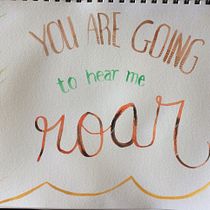 YOU ARE GOING
to hear me
roar